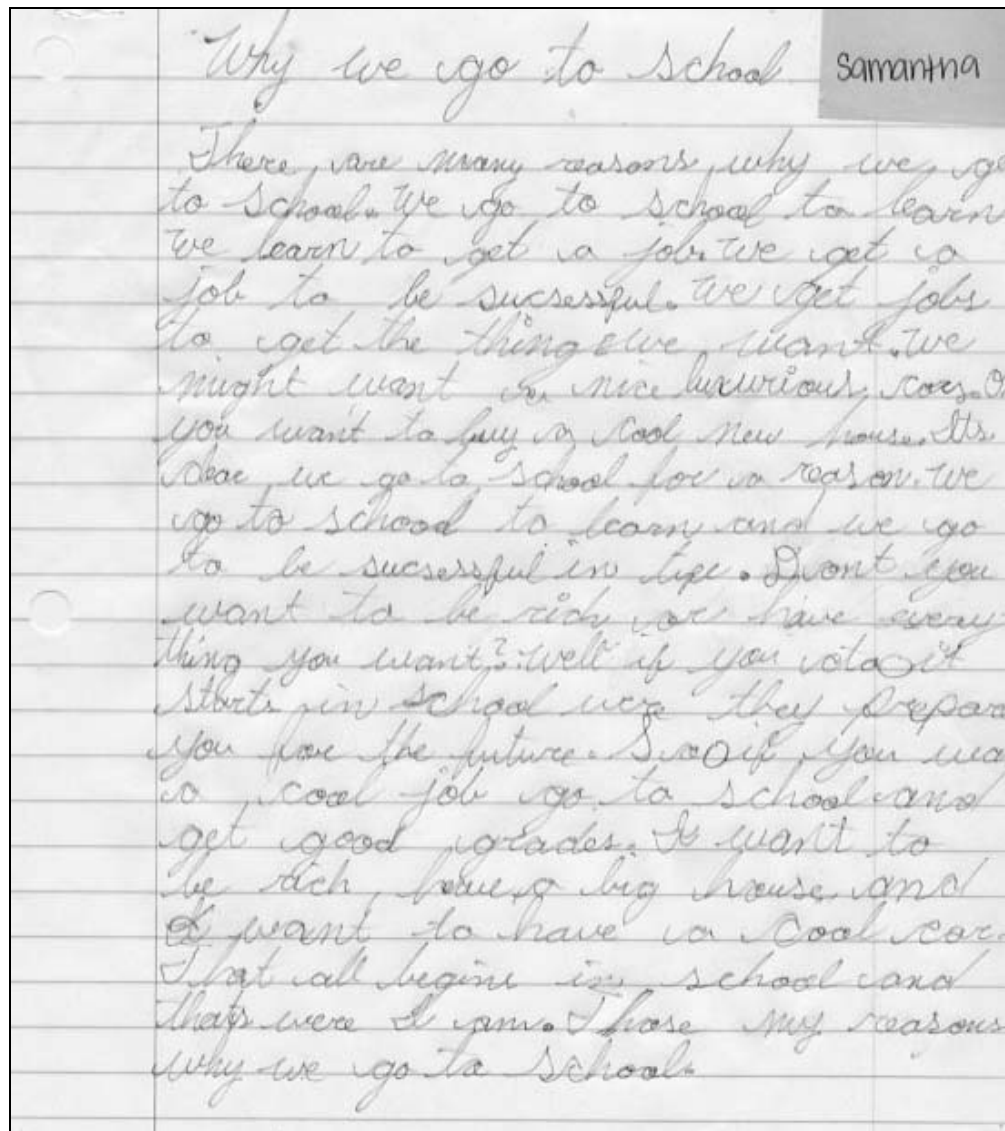 Why we go to school
Samantha
There are many reasons why we go
to school. We go to school to learn
we learn to get a job. We get a
job to be sucsessful. We get jobs
to get the things we want. We
might want a nice luxurious car. Or
you want to buy a cool new house. Its
clear we go to school for a reason. We
go to school to learn and we go
to be sucsessful in life. Dvont you
want to be rich or have every
thing you want? Well if you do it
starts in school were they prepare
you for the future. So if you wa
a cool job go to school and
get good grades. I want to
be rich, have a big house and
I want to have a cool car.
That all begins in school and
that's were I am. Those my reasons
why we go to school.